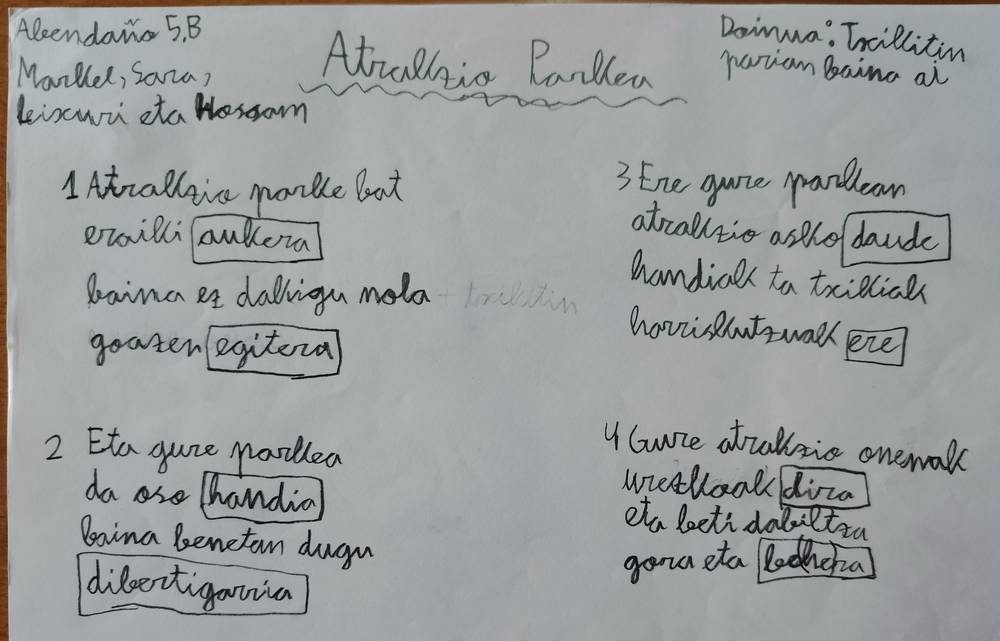 Abendaño 5,B
Markel, Sara,
Leixuri eta Hossam
Atrakzio Parkea
Doinua: Txikitin
parian baina ai
1 Atrakzio parke bat
eraiki aukera
baina ez dakigu nola
goazen egitera
2 Eta gure parkea
da oso handia
baina benetan dugu
dibertigarria
3 Ere gure parkean
atrakzio asko daude
handiak ta txikiak
horriskutzuak ere
4 Gure atrakzio onenak
urezkoak dira
eta beti dabiltza
gora eta behera